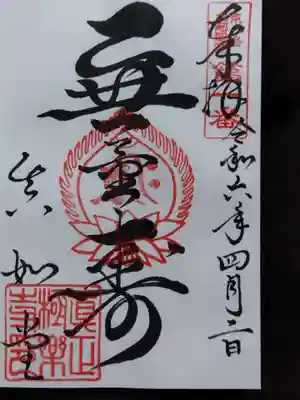 奉拝
令和六年四月二日
無量寿
真如堂